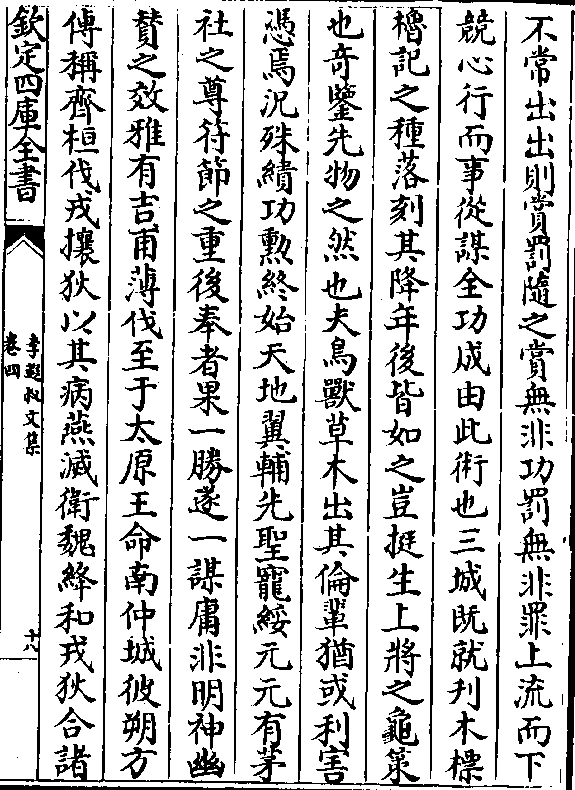 不常出出則賞罰隨之賞無非功罰無非罪上流而下
競心行而事從謀全功成由此術也三城既就刋木標
櫓記之種落刻其降年後皆如之豈挺生上將之龜策
也奇鑒先物之然也夫鳥獸草木出其倫輩猶或利害
憑焉況殊績功勲終始天地翼輔先聖寵綏元元有茅
社之尊符節之重後奉者果一勝遂一謀庸非明神幽
賛之效雅有吉甫薄伐至于太原王命南仲城彼朔方
傳稱齊桓伐戎攘狄以其病燕滅衛魏絳和戎狄合諸
欽定四庫全書
李遐叔文集
卷四
十八